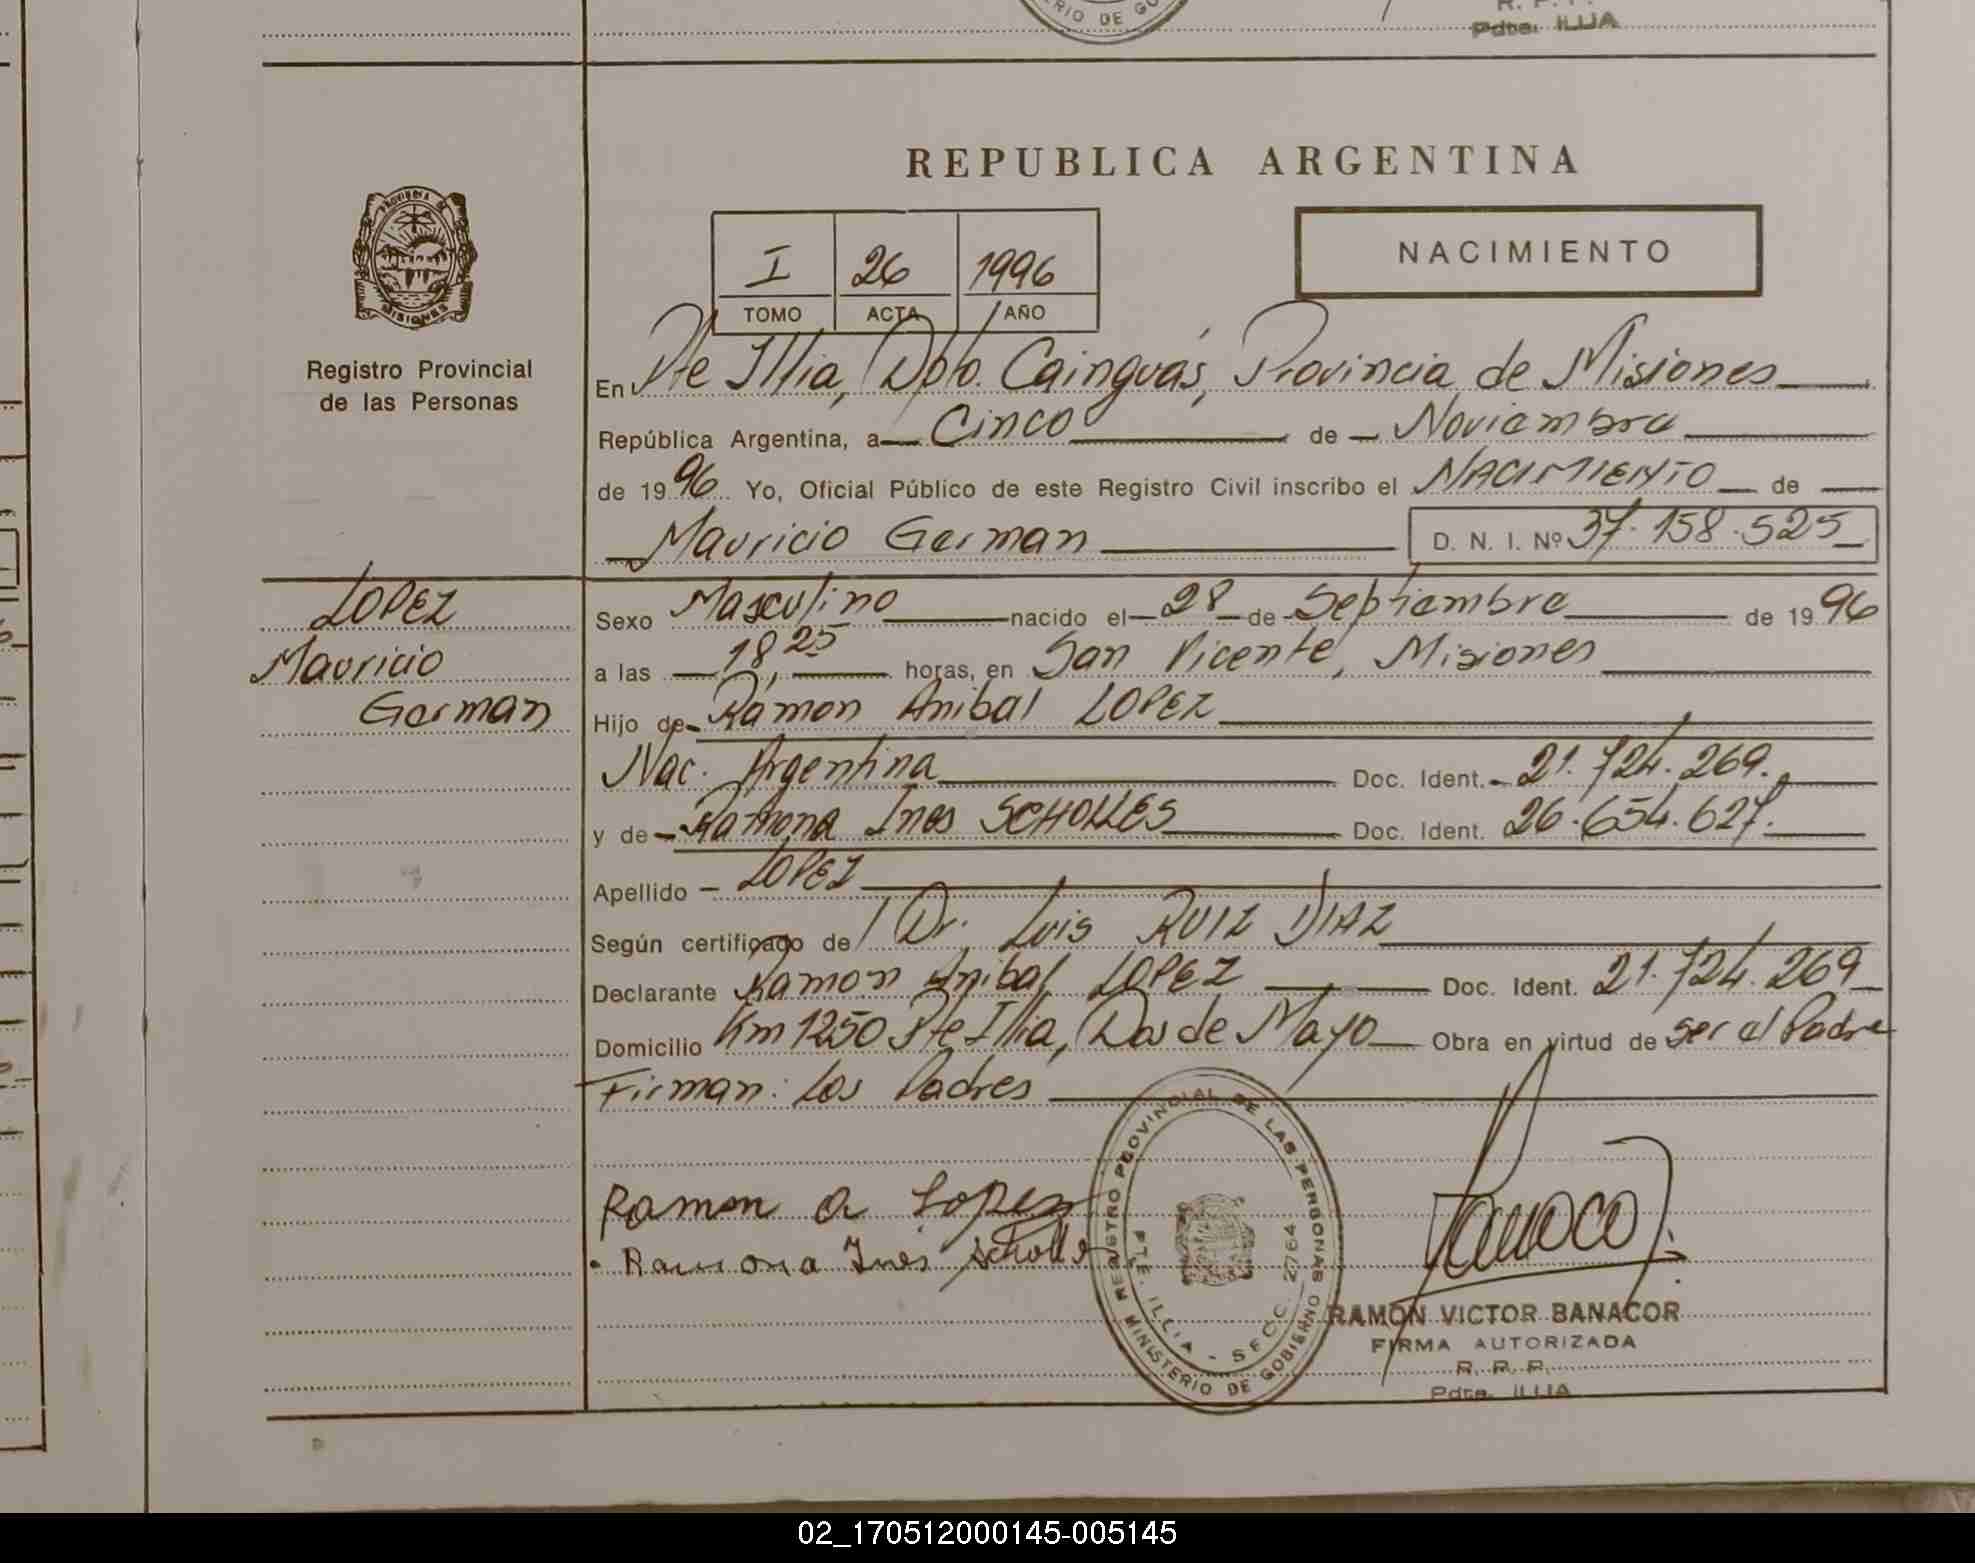 Pdte. ILLIA
REPUBLICA ARGENTINA
NACIMIENTO
I 26 1996
TOMO ACTA AÑO
PROVINCIA DE MISIONES
Registro Provincial
de las Personas
En Pte Illia, Dpto. Cainguás, Provincia de Misiones
República Argentina, a Cinco de Noviembre
de 1996 Yo, Oficial Público de este Registro Civil inscribo el NACIMIENTO de
Mauricio German D. N. I. Nº 37.158.525
LOPEZ
Mauricio
German
Sexo Masculino nacido el 28 de Septiembre de 1996
a las 18,25 horas, en San Vicente, Misiones
Hijo de Ramon Anibal LOPEZ
Nac. Argentina Doc. Ident. 21.724.269.
y de Ramona Ines SCHOLLES Doc. Ident. 26.654.627.
Apellido LOPEZ
Según certificado de Dr. Luis RUIZ DIAZ
Declarante Ramon Anibal LOPEZ Doc. Ident. 21.724.269
Domicilio Km 1250 Pte Illia, Dos de Mayo Obra en virtud de ser el Padre
Firman: Los Padres
Ramon A Lopez
Ramona Ines
REGISTRO PROVINCIAL DE LAS PERSONAS
MINISTERIO DE GOBIERNO
PTE. ILLIA - SECC. 2764
RAMON VICTOR BANACOR
FIRMA AUTORIZADA
R. R. P.
Pdte. ILLIA
02_170512000145-005145